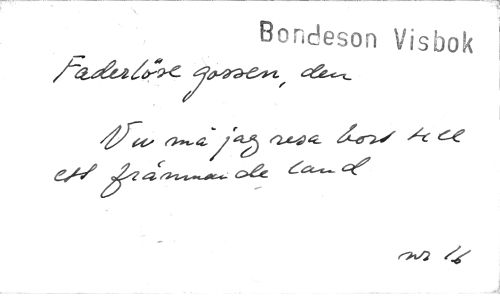 Bondeson Visbok
Faderlöse gossen, den
Nu må jag resa bort till
ett främmande land
nr 16